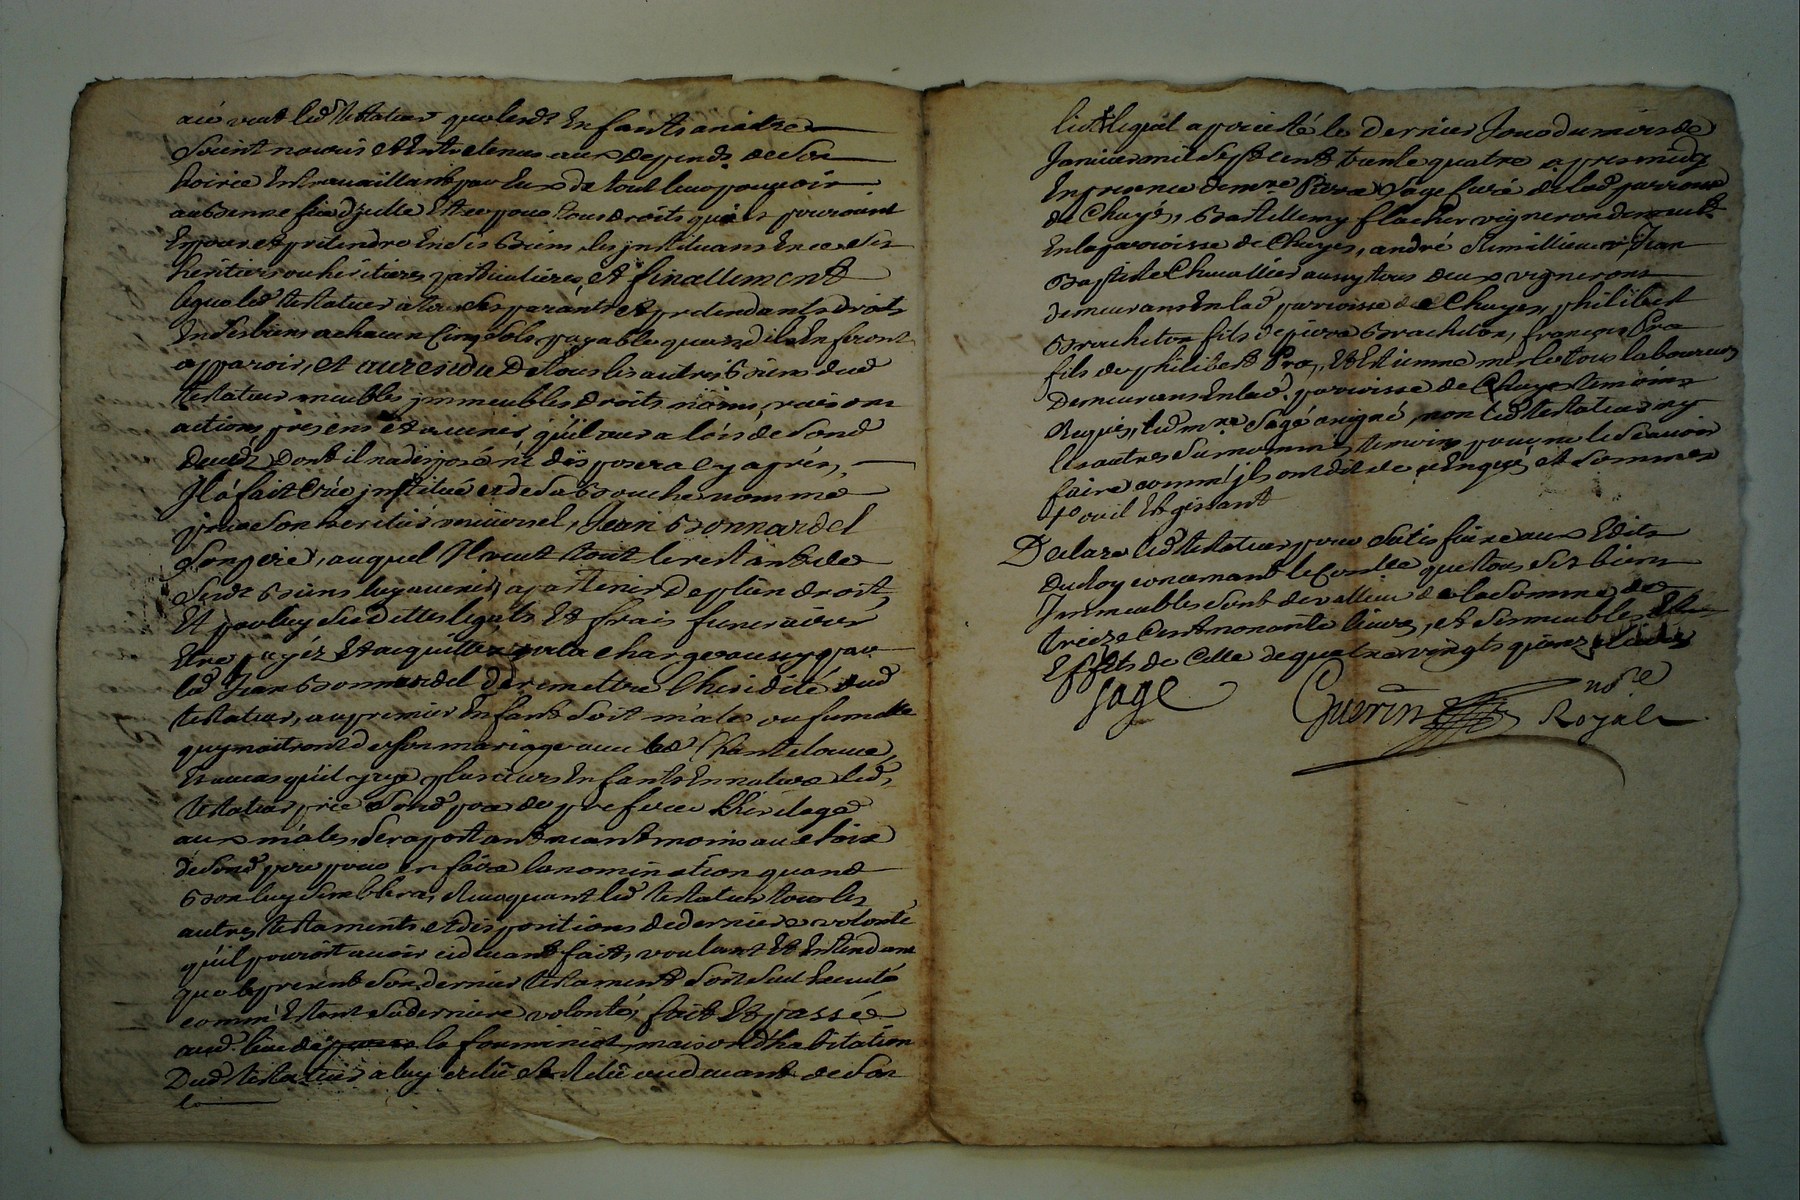 veut led. testateur que lesd. Enfants a naitre
Soient nouris et Entretenus aux depends de Son
hoirie En travaillant par Eux de tout leur pouvoir
Et ce pour tous droits qui pouroient
Et pretendre En Ses biens les jnstituans En ce Ses
heritiers ou heritieres particulieres, Et finallement
legue led. testateur a tous Ses parants Et pretendants droits
En Ses biens a chacun Cinq Sols payable quand ils En feront
apparoir, et au residu De tous les autres biens dud.
testateur meubles jmmeubles droits noms raisons
actions présens et avenir, qu'il aura lors de Sond.
deceds Dont il na disposé ni disposera cy aprés,
Jl a fait Crée jnstitué et de Sa bouche nommé
pour Son heritier universel, Jean Bonnardel
Son pere, auquel Jl veut tout le restant de
Sesd. biens luy avenir, apartenir De plein droit,
Et par luy Ses dettes legats Et frais funeraires
Etre payéz Et acquittez a la charge aussy par
led. Jean Bonnardel de remettre l'heridité dud.
testateur, au premier Enfant Soit mâle ou fumelle
quy naitront de Son mariage avec lad. Chantelouve,
En au cas qu'il y aye plusieurs Enfants En nature led.
testateur prie Sond. pere de preferer l'heritage
aux mâles, Se raportant neantmoins au choix
de Sond. pere pour en faire la nomination quand
bon luy Semblera, Revoquant led. testateur tous les
autres testaments et dispositions de derniere volonté
qu'il pouroit avoir cidevant fait, voulant Et Entendant
que le present Son dernier testament Soit Seul Executé
comm' Estant Sa derniere volonté, fait Et passé
aud. lieu de la fouminiet, maison d'habitation
Dud. testateur a luy et audevant de Son
lit
lit le dernier Jour du mois de
Janvier mil Sept cent trente quatre apres midy
En presence de mre Pierre Sage Curé de lad. parroisse
de Chuyes, Barthellemy flacher vigneron demeurt.
En la parroisse de Chuyes, andré Jean
Baptiste Chevallier aussy tous deux vignerons
demeurans En lad. parroisse de Chuyes, philibert
Bracheton fils de pierre Bracheton, françois Pra
fils de philibert Pra, Et Estienne merle tous laboureurs
Demeurans En lad. parroisse de Chuyes temoins
Requis, led. mre Sage a signé, non led. testateur ny
les autres Surnommés temoins pour ne le Scavoir
faire comm' jls ont dit de ce Enquis et Sommés
ou il Est gissant
Declare led. testateur pour Satisfaire aux Edits
Du Roy concernant le que tous Ses biens
Jmmeubles Sont de valleur de la Somme de
treize Cent nonante livres, et Ses meubles Et
Effets de Celle de quatre vingts quinze livres
Sage
Guerin nore
Royale